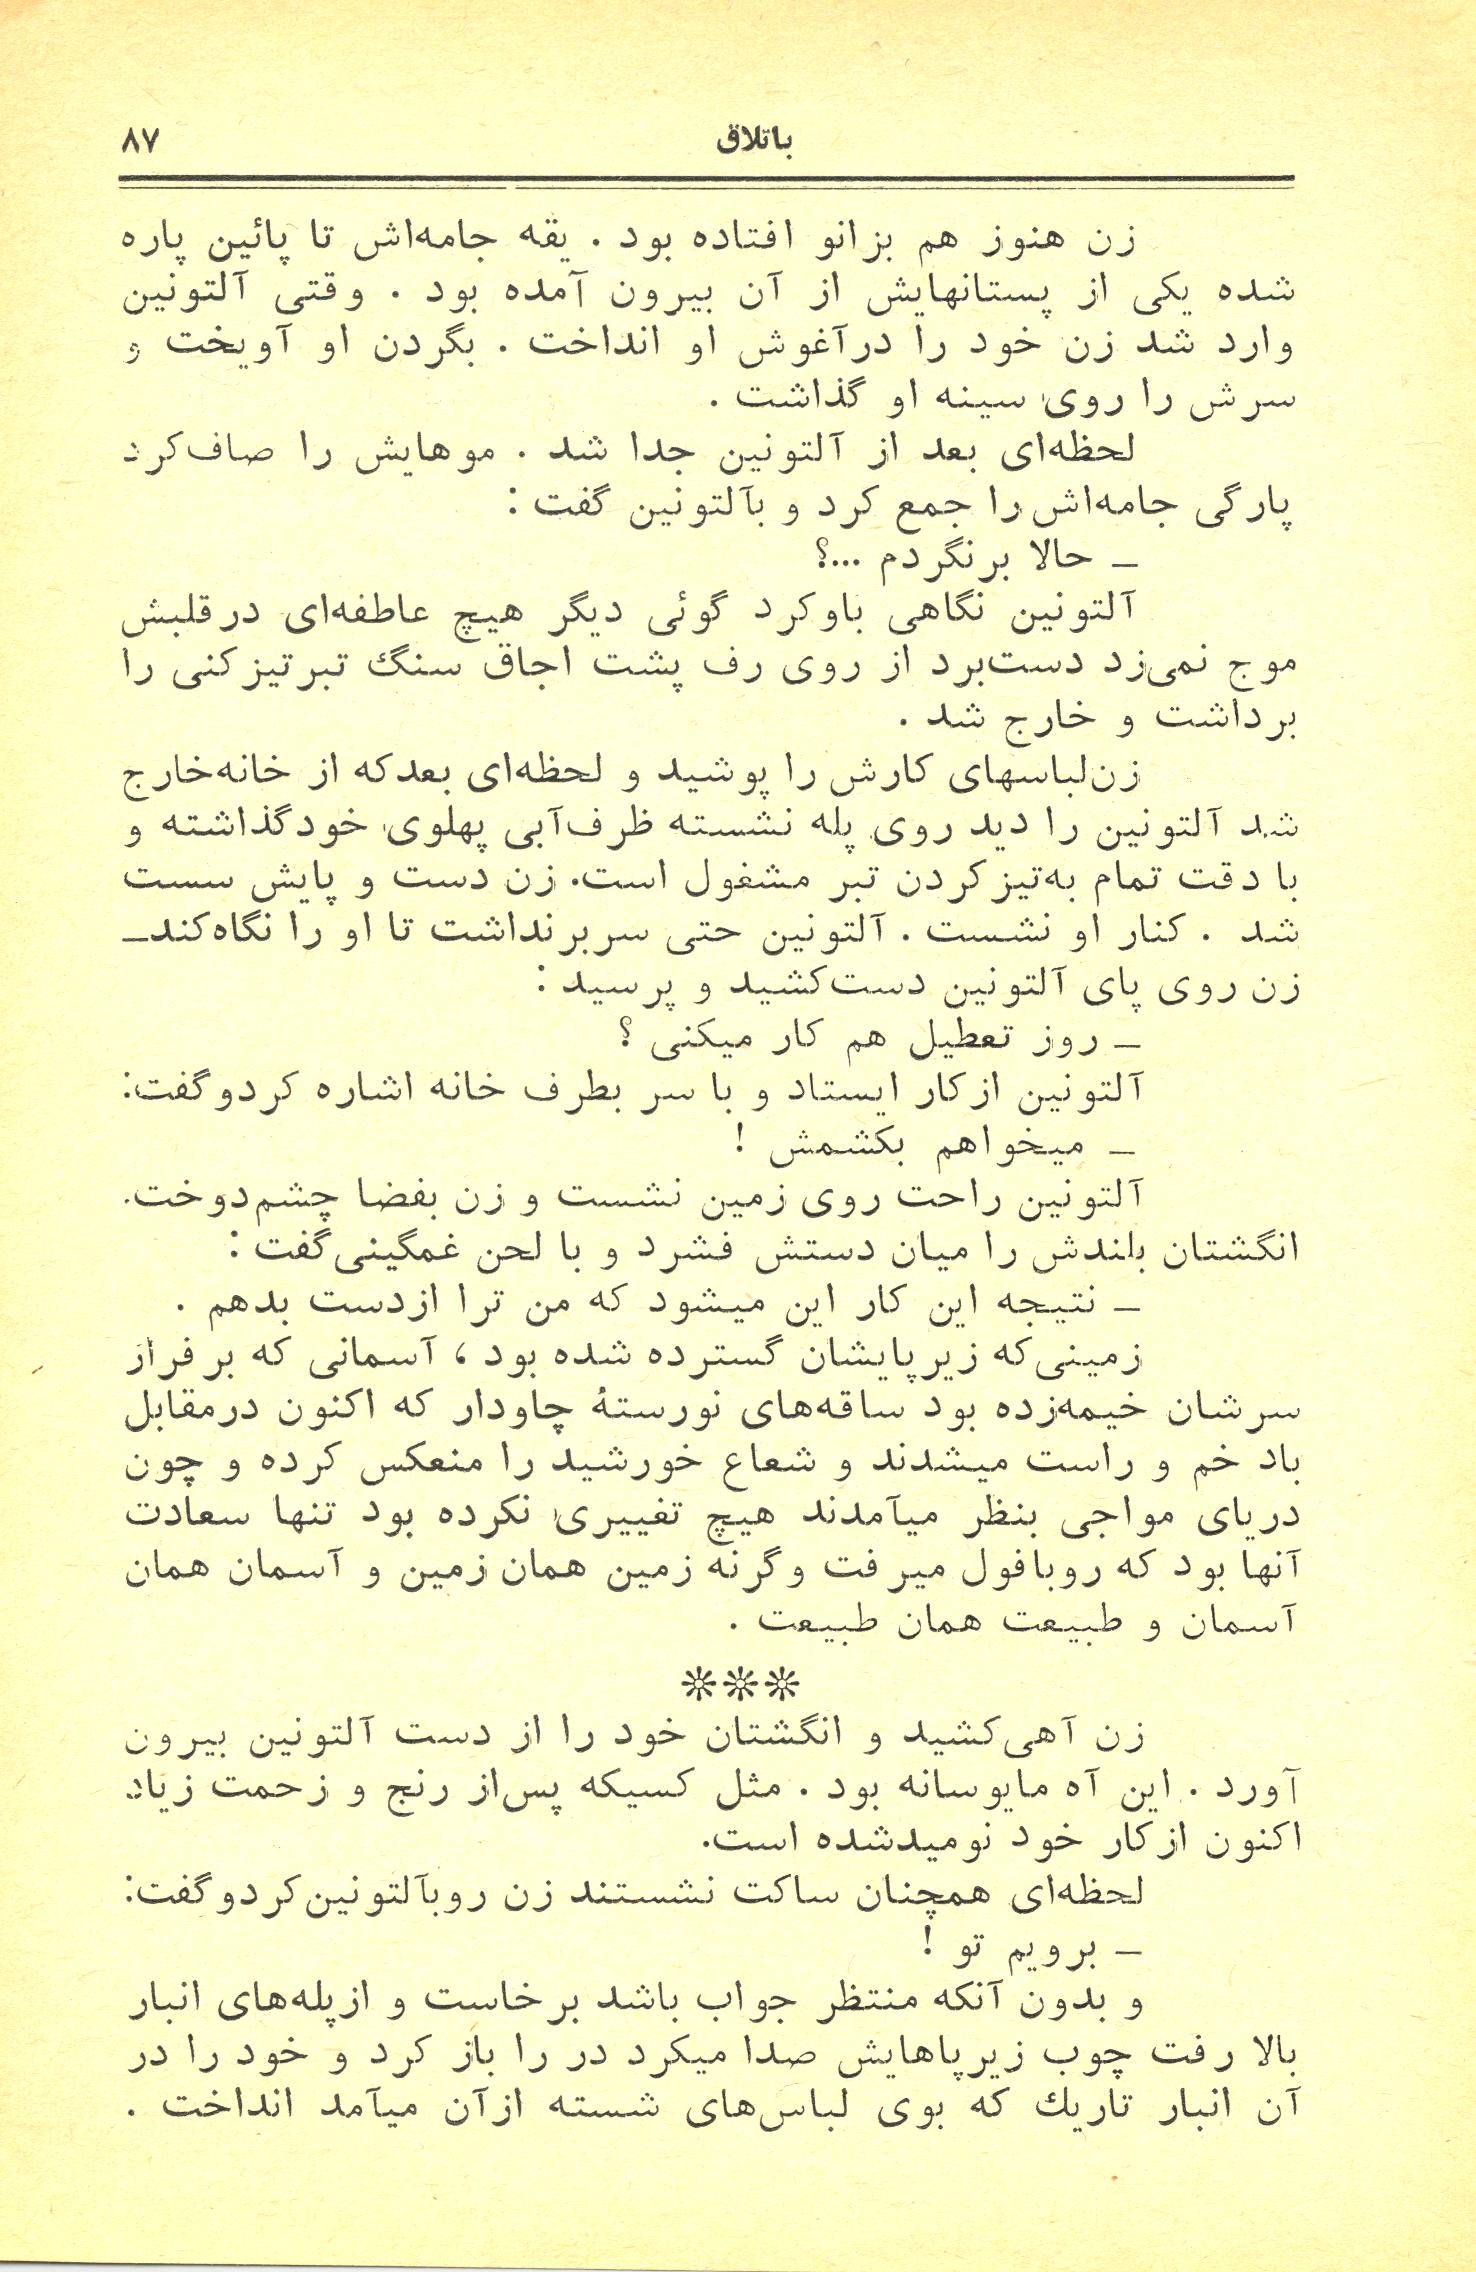 باتلاق ۸۷
زن هنوز هم بزانو افتاده بود . یقه جامه‌اش تا پائین پاره
شده یکی از پستانهایش از آن بیرون آمده بود . وقتی آلتونین
وارد شد زن خود را درآغوش او انداخت . بگردن او آویخت و
سرش را روی سینه او گذاشت .
لحظه‌ای بعد از آلتونین جدا شد . موهایش را صاف‌کرد
پارگی جامه‌اش را جمع کرد و بآلتونین گفت :
ـ حالا برنگردم ...؟
آلتونین نگاهی باوکرد گوئی دیگر هیچ عاطفه‌ای درقلبش
موج نمی‌زد دست‌برد از روی رف پشت اجاق سنگ تبرتیزکنی را
برداشت و خارج شد .
زن‌لباسهای کارش را پوشید و لحظه‌ای بعدکه از خانه‌خارج
شد آلتونین را دید روی پله نشسته ظرف‌آبی پهلوی خودگذاشته و
با دقت تمام به‌تیزکردن تبر مشغول است. زن دست و پایش سست
شد . کنار او نشست . آلتونین حتی سربرنداشت تا او را نگاه‌کند ـ
زن روی پای آلتونین دست‌کشید و پرسید :
ـ روز تعطیل هم کار میکنی ؟
آلتونین ازکار ایستاد و با سر بطرف خانه اشاره کردوگفت:
ـ میخواهم بکشمش !
آلتونین راحت روی زمین نشست و زن بفضا چشم‌دوخت.
انگشتان بلندش را میان دستش فشرد و با لحن غمگینی‌گفت :
ـ نتیجه این کار این میشود که من ترا ازدست بدهم .
زمینی‌که زیرپایشان گسترده شده بود ، آسمانی که برفراز
سرشان خیمه‌زده بود ساقه‌های نورستهٔ چاودار که اکنون درمقابل
باد خم و راست میشدند و شعاع خورشید را منعکس کرده و چون
دریای مواجی بنظر میآمدند هیچ تغییری نکرده بود تنها سعادت
آنها بود که روبافول میرفت وگرنه زمین همان زمین و آسمان همان
آسمان و طبیعت همان طبیعت .
❊❊❊
زن آهی‌کشید و انگشتان خود را از دست آلتونین بیرون
آورد . این آه مایوسانه بود . مثل کسیکه پس‌از رنج و زحمت زیاد
اکنون ازکار خود نومیدشده است.
لحظه‌ای همچنان ساکت نشستند زن روبآلتونین‌کردوگفت:
ـ برویم تو !
و بدون آنکه منتظر جواب باشد برخاست و ازپله‌های انبار
بالا رفت چوب زیرپاهایش صدا میکرد در را باز کرد و خود را در
آن انبار تاریك که بوی لباس‌های شسته ازآن میآمد انداخت .